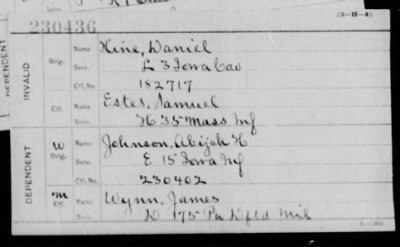 230436
(3-H-4)
INVALID
Orig.
Name Hine, Daniel
Serv. L 3 Iowa Cav
Ctf. No. 182717
Ctf.
Name Estes, Samuel
Serv. H 35 Mass Inf
DEPENDENT
W
Orig.
Name Johnson, Abijah H
Serv. E 15 Iowa Inf
Ctf. No. 230402
M
Ctf.
Name Wynn, James
Serv. D 175 Pa Dftd Mil
DEPENDENT